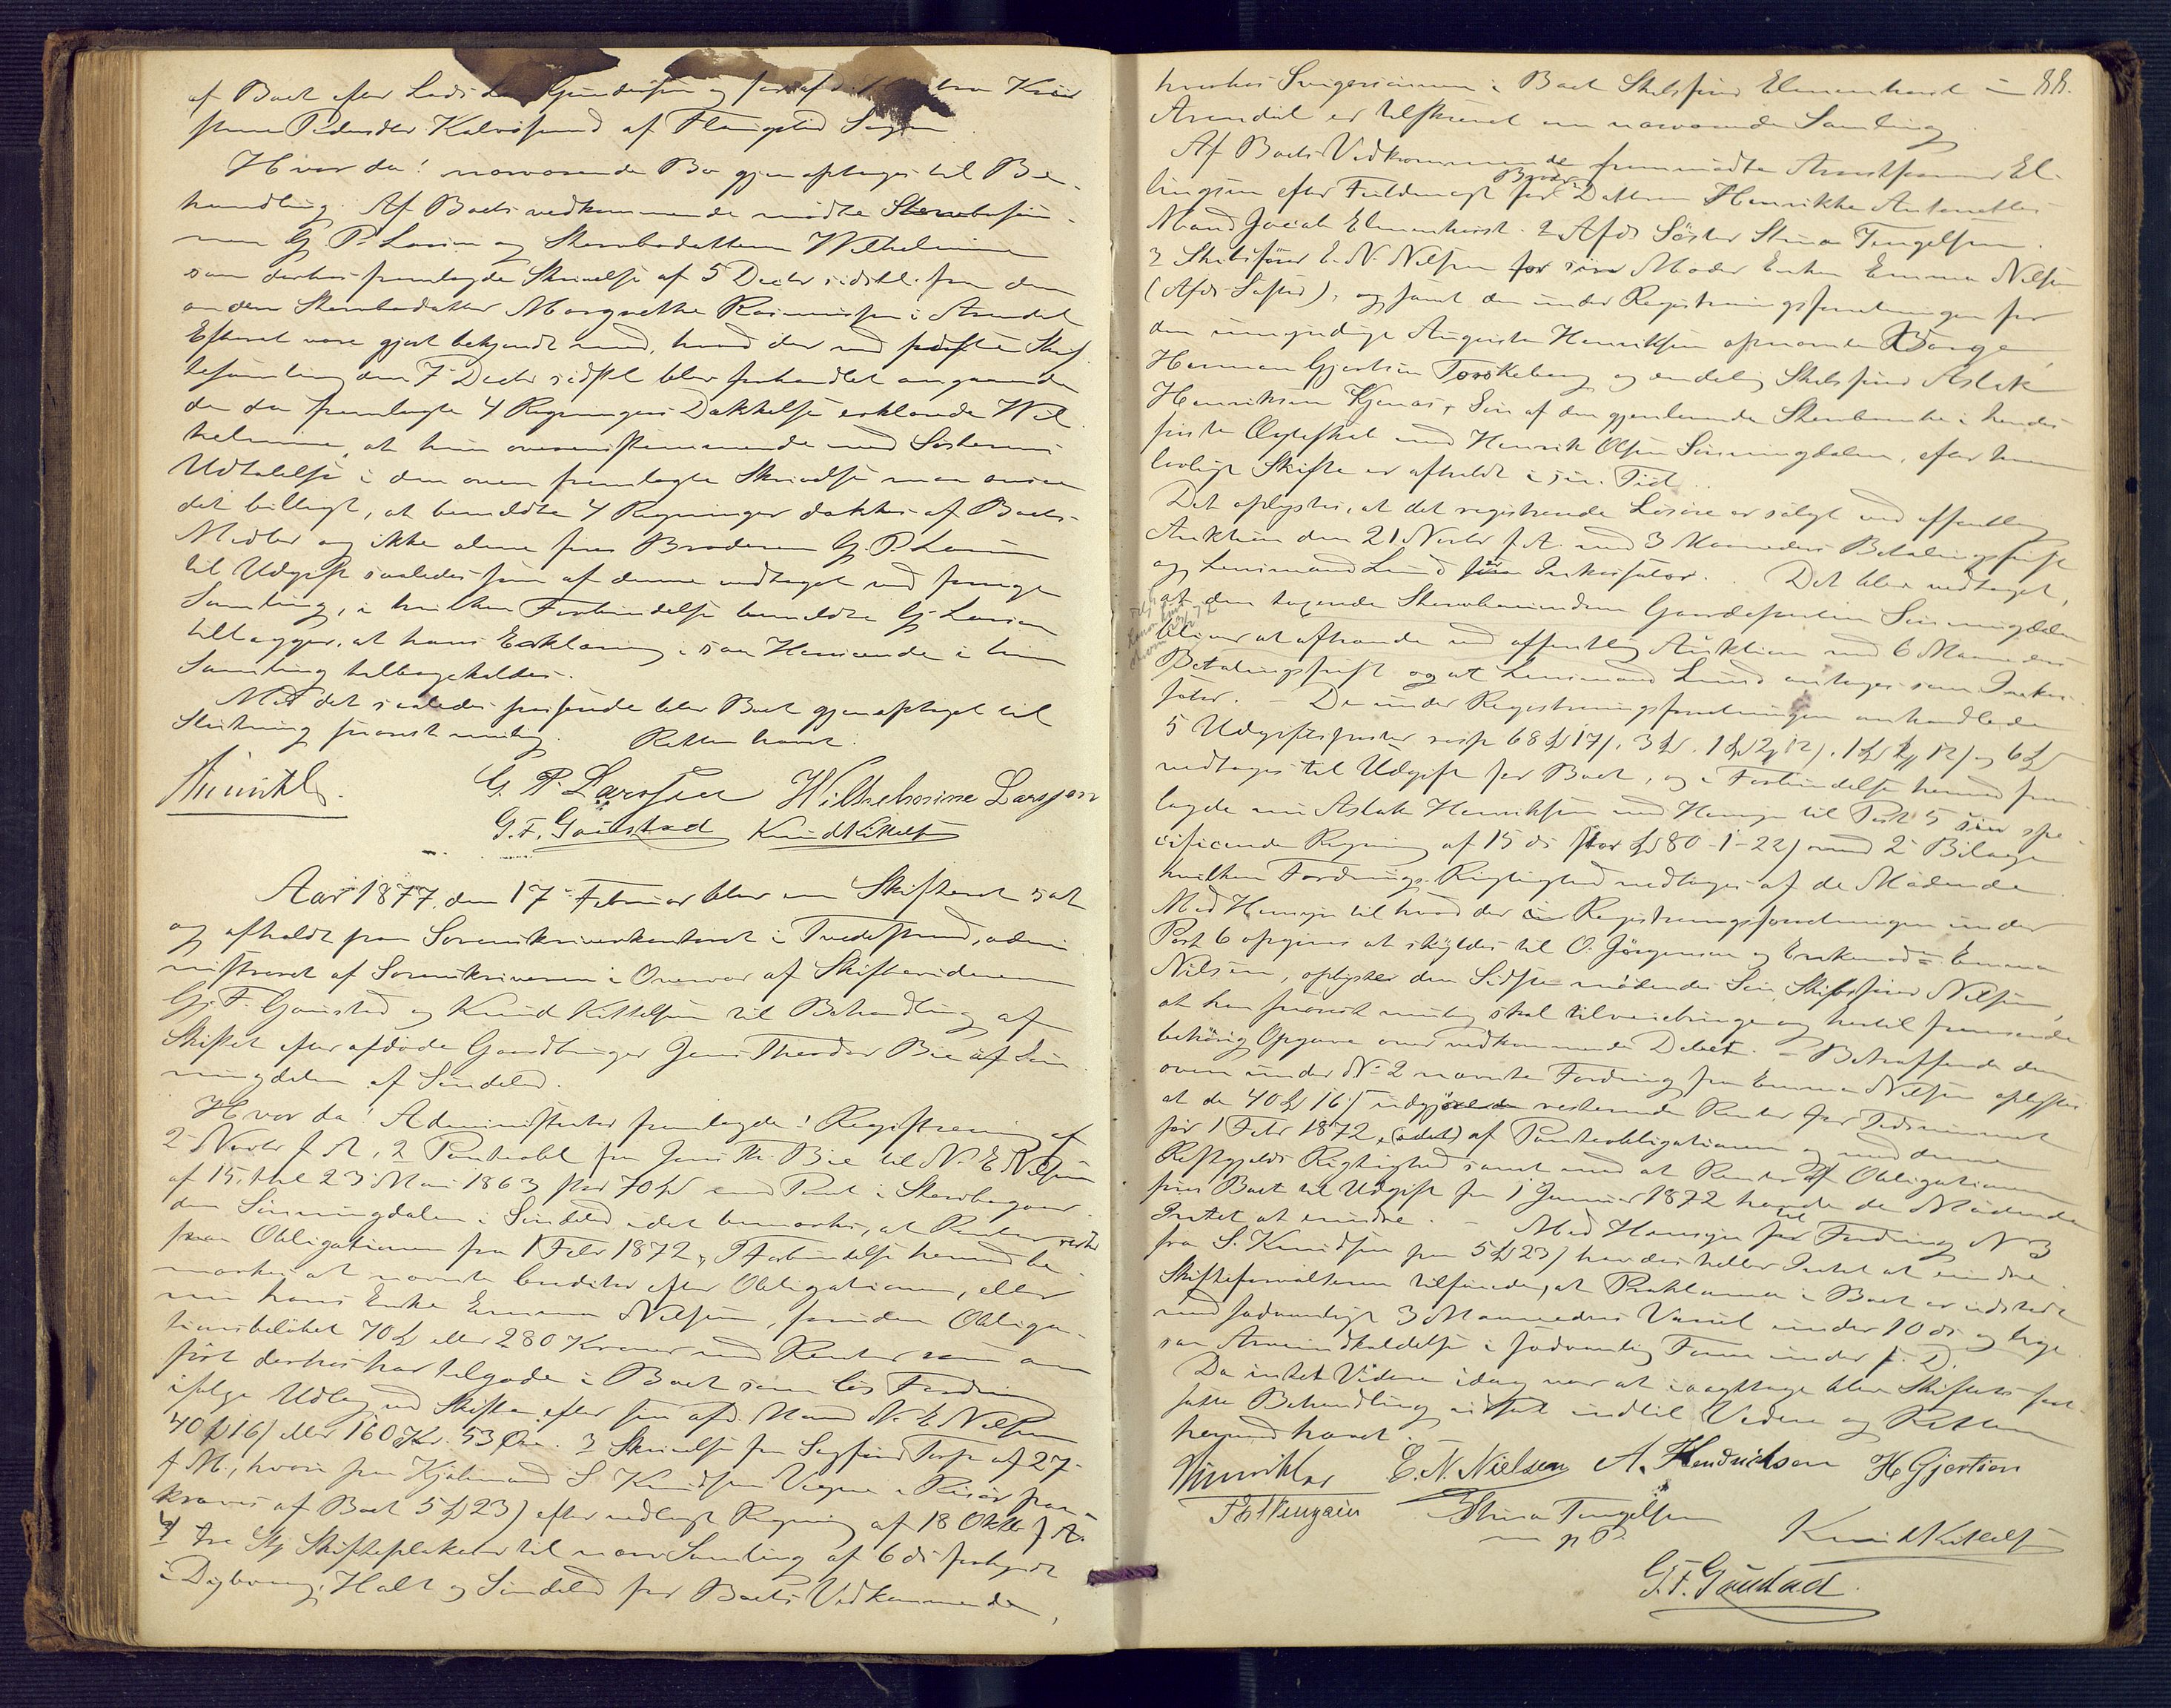 af Boet efter Lods Gundersen og
stine Pedersdtr Kalvøsund af Flangstad Sogn
Hvor da! nærværende Bo gjenoptoges til Be-
handling. Af Boets vedkommende mødte Stervbosøn-
nen G. P. Larsen og Stervbodatteren Wilhelmine
som derhos fremlagde Skrivelse af 5 Decbr sidstl. fra den
anden Stervbodatter Margrethe Rasmussen i Arendal
Efterat være gjort bekjendt med, hvad der ved sidste Skif-
tesamling den 7 Decbr sidstl. blev forhandlet angaaende
de da fremlagte 4 Regningers Dækkelse erklærede Wil-
helmine, at hun overensstemmende med Søsterens
Udtalelse i den oven fremlagte Skrivelse maa ansee
det billigt, at bemeldte 4 Regninger dækkes af Boets
Midler og ikke alene af Broderen G. P. Larsen
til Udgift saaledes som af denne vedtaget ved forrige
Samling, i hvilken Forbindelse bemeldte G. Larsen
tillægger, at hans Erklæring i saa Henseende i hin
Samling tilbagekaldes.
Med det saaledes passerede blev Boet gjenoptaget til
Slutning snarest mulig. Retten hævet.
G. P. Larssen Wilhelmine Larssen
G. F. Goustad Knud Kittelsen
Aar 1877, den 17 Februar blev en Skifteret sat
og afholdt paa Sorenskriverkontoret i Tvedestrand, admi-
nistreret af Sorenskriveren i Overvær af Skiftevidnerne
Gj. F. Goustad og Knud Kittelsen til Behandling af
Skiftet efter afdøde Gaardbruger Jens Theodor Bie af Sin-
ningdalen af Søndeled.
Hvor da! Administrator fremlagde: 1 Registrering af
2 Novbr f. A., 2 Panteobl. fra Jens Th. Bie til N. E. Nilsen
af 15, thl. 23 Mai 1863 stor 70 Spd med Pant i Stervbogaar-
den Sinningdalen i Søndeled idet bemærkes, at Renter rester
paa Obligationen fra 1 Febr 1872, I Forbindelse hermed be-
mærkes at nævnte Creditor efter Obligationen, eller
nu hans Enke Emma Nilsen, foruden Obliga-
tionsbeløbet 70 Spd eller 280 Kroner med Renter som an-
ført derhos har tilgode i Boet som løs Fordring
ifølge Udlæg ved Skiftet efter sin afd. Mand N. E. Nilsen
40 Spd 16 s eller 160 Kr. 53 Øre. 3 Skrivelse fra Sagfører Torp af 27
f. M., hvori fra Kjøbmand S. Knudsen Vegne i Risør paa-
kræves af Boet 5 Spd 23 s efter vedlagt Regning af 18 Oktbr f. A.
4 tre Stk Skifteplakater til nærv. Samling af 6 ds forkyndt
i Dybvaag, Holt og Søndeled for Boets Vedkommende,
88.
hvorhos Svigersønnen i Boet Skibsfører Elmenhorst i
Arendal er tilskrevet om nærværende Samling
Af Boets Vedkommende fremmødte El-
lingsen efter Fuldmagt for Datteren Henrikke Antonettes
Mand Jacob Elmenhorst. 2 Afds Søster Stina Tengelsen.
3 Skibsfører E. N. Nilsen for sin Moder Enken Emma Nilsen
(Afds Søster), og samt den under Registreringsforretningen for
den umyndige Augusta Henriksen opnævnte Værge
Herman Gjertsen Torskeberg og endelig Skibsfører Aslak
Henriksen Kjenes, Søn af den gjenlevende Stervboenke i hendes
første Ægteskab med Henrik Olsen Sinningdalen, efter hvem
lovligt Skifte er afholdt i sin Tid.
Det oplystes, at det registrerede Løsøre er solgt ved offentlig
Auktion den 21 Novbr f. A. med 3 Maaneders Betalingsfrist
og Lensmand Lund som Inkassator. Det blev vedtaget,
at den tilhørende Stervboeiendom Gaardeparten Sinningdalen
bliver at afhænde ved offentlig Auktion med 6 Maaneders
Betalingsfrist og at Lensmand Lund antages som Inkas-
sator. – De under Registreringsforretningen omhandlede
5 Udgiftsposter resp. 68 Spd 17 s, 3 Spd, 1 Spd 2 ort 12 s, 1 Spd 2 ort 12 s og 6 Spd
vedtoges til Udgift for Boet, og i Forbindelse hermed frem-
lagde nu Aslak Henriksen med Hensyn til Post 5 sin spe-
cificerede Regning af 15 ds stor Spd 80-1-22 s med 2 Bilage
hvilken Fordrings Rigtighed vedtoges af de Mødende
Med Hensyn til hvad der i Registreringsforretningen under
Post 6 opgives at skyldes til O. Jørgensen og Enkemad. Emma
Nilsen, oplyster den Sidste mødende Søn, Skibsfører Nilsen,
at han snarest mulig skal tilveiebringe og hertil fremsende
behørig Opgave over vedkommende Debet. – Betræffende den
oven under No 2 nævnte Fordring fra Emma Nilsen oplystes
at de 40 Spd 16 s udgjør resterende Renter for Tidsrummet
før 1 Febr 1872, af Panteobligationen og mod denne
Restgjelds Rigtighed samt mod at Renter af Obligationen
føres Boet til Udgift fra 1 Januar 1872 havde de Mødende
Intet at erindre. – Med Hensyn til Fordring No 3
fra S. Knudsen paa 5 Spd 23 s havdes heller Intet at erindre.
Skifteforvalteren tilføiede, at Proklama i Boet er udstedt
med sædvanligt 3 Maaneders Varsel under 10 ds og lige-
saa Arveindkaldelse i sædvanlig Form under s. D.
Da intet Videre idag var at iagttage blev Skiftets fort-
satte Behandling udsat indtil Videre og Retten
herved hævet.
E. N. Nielsen A. Hendrichsen H Gjertsen
Stina Tengelsen
m p P.
Knud Kittelsen
G. F. Goustad